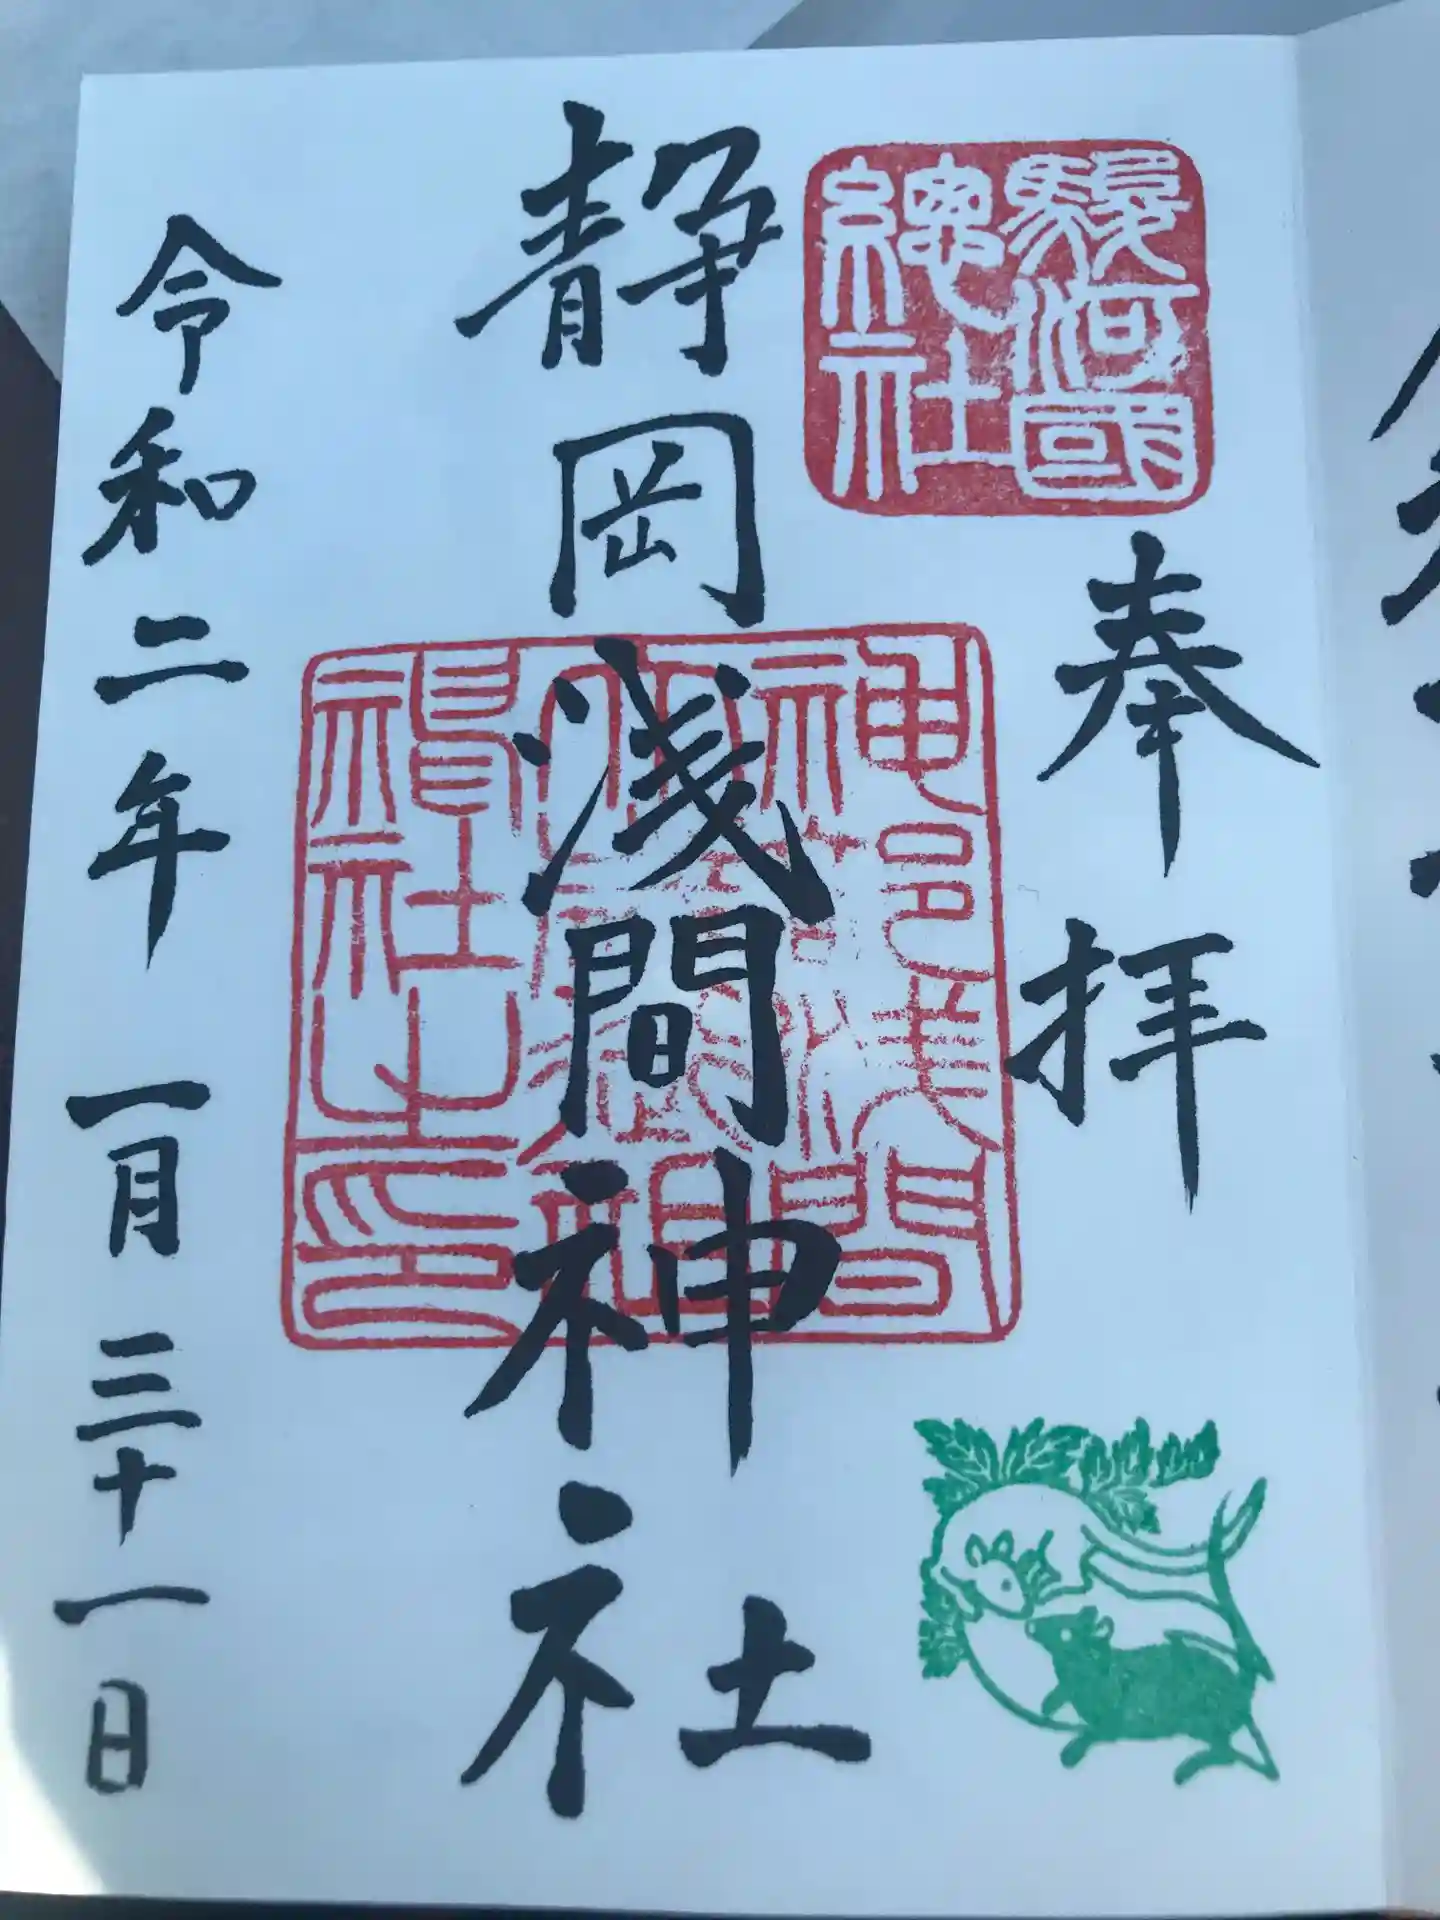 駿河國
總社
奉拝
静岡浅間神社
神部浅間
大歳御祖
神社之印
令和二年 一月三十一日